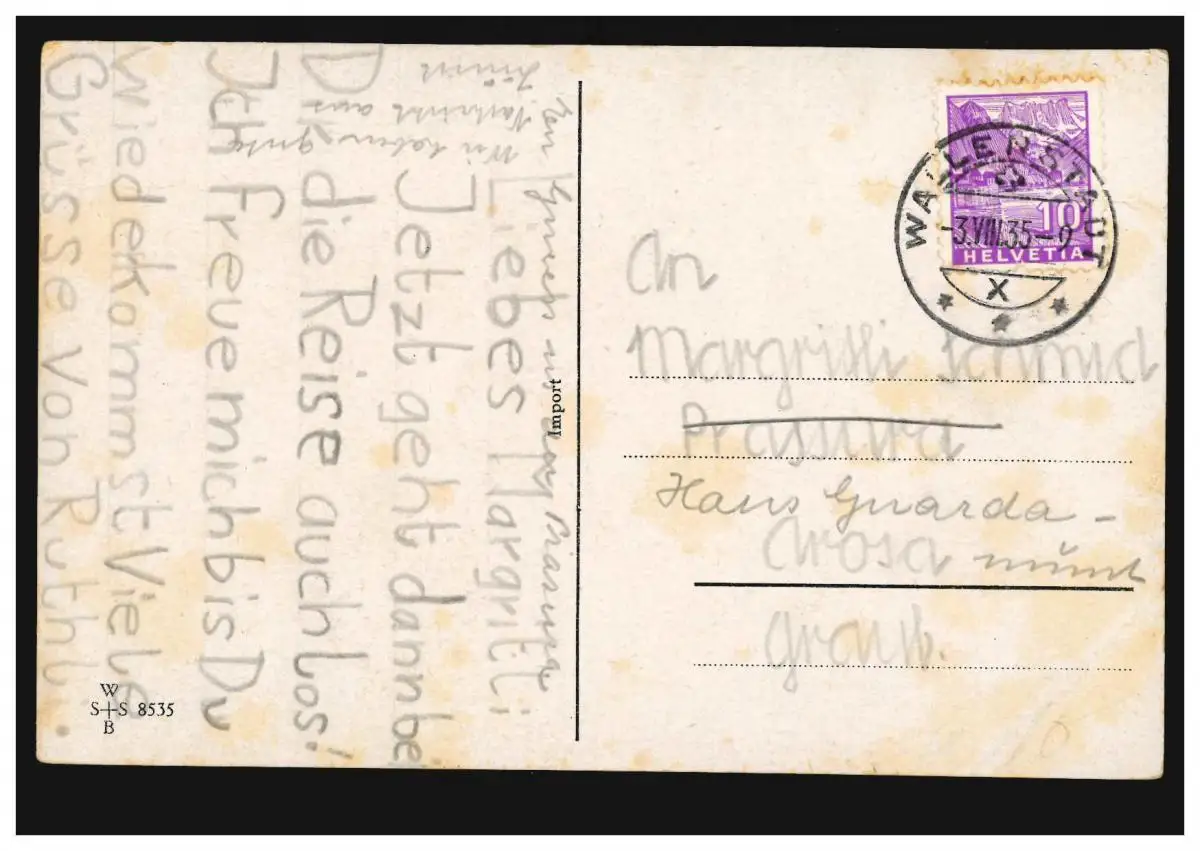 Liebes Margritli
Jetzt geht dann bei
Dir die Reise auch los!
Ich freue mich bis Du
wiederkommst Viele
Grüsse von Ruthli.
Wir haben gute
aus
Import
W
S+S 8535
B
WALLENSTADT
-3.VIII.35-9
X
10
HELVETIA
An
Margritli Schmid
Prassura
Haus Guarda-
Arosa
Graub.